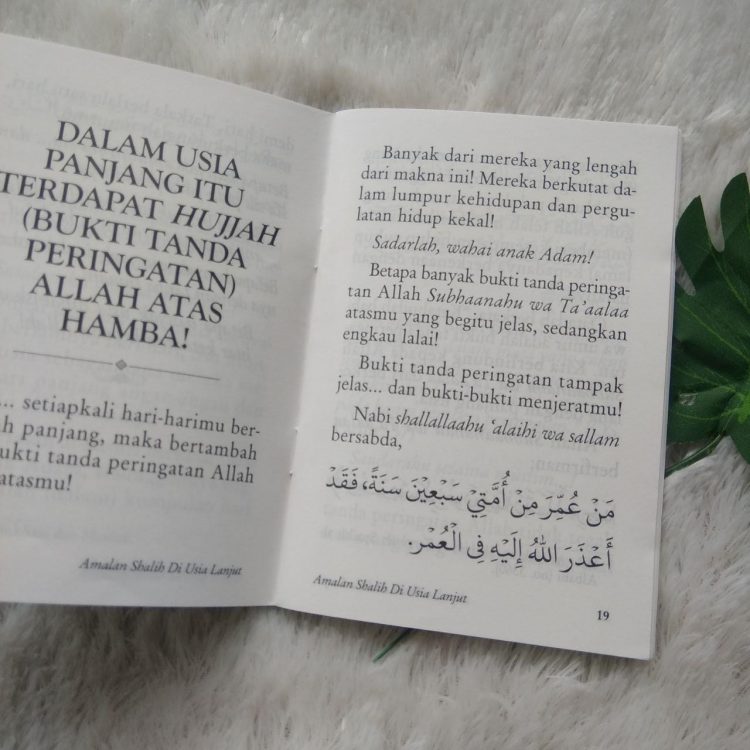 DALAM USIA
PANJANG ITU
TERDAPAT HUJJAH
(BUKTI TANDA
PERINGATAN)
ALLAH ATAS
HAMBA!
... setiapkali hari-harimu ber-
ah panjang, maka bertambah
bukti tanda peringatan Allah
atasmu!
Amalan Shalih Di Usia Lanjut
Banyak dari mereka yang lengah
dari makna ini! Mereka berkutat da-
lam lumpur kehidupan dan pergu-
latan hidup kekal!
Sadarlah, wahai anak Adam!
Betapa banyak bukti tanda peringa-
tan Allah Subhaanahu wa Ta'aalaa
atasmu yang begitu jelas, sedangkan
engkau lalai!
Bukti tanda peringatan tampak
jelas... dan bukti-bukti menjeratmu!
Nabi shallallaahu 'alaihi wa sallam
bersabda,
مَنْ عُمِّرَ مِنْ أُمَّتِيْ سَبْعِيْنَ سَنَةً، فَقَدْ
أَعْذَرَ اللهُ إِلَيْهِ فِي الْعُمْرِ.
Amalan Shalih Di Usia Lanjut
19